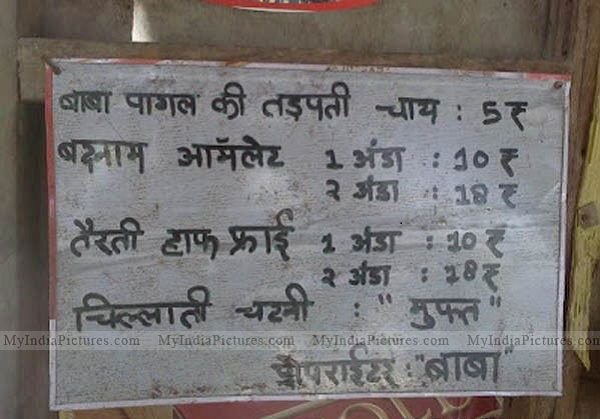 बाबा पागल की तड़पती चाय : 5 ₹
बदनाम ऑमलेट 1 अंडा : 10 ₹
२ अंडा : 18 ₹
तैरती हाफ फ्राई 1 अंडा : 10 ₹
२ अंडा : 18 ₹
चिल्लाती चटनी : "मुफ्त"
MyIndiaPictures.com MyIndiaPictures.com MyIndiaPictures.com MyIndiaPictures.com
प्रोपराईटर : "बाबा"